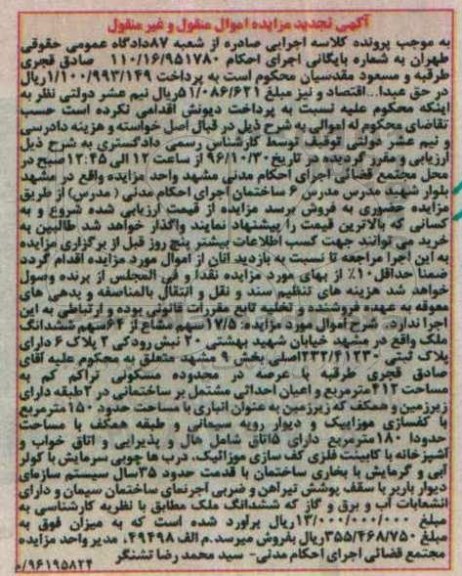 آگهی تجدید مزایده اموال منقول و غیر منقول
به موجب پرونده کلاسه اجرایی صادره از شعبه ۸۷دادگاه عمومی حقوقی
طهران به شماره بایگانی اجرای احکام ۱۱۰/۱۶/۹۵۱۷۸۰ صادق قجری
طرقبه و مسعود مقدسیان محکوم است به پرداخت ۱/۱۰۰/۹۹۳/۱۴۹ریال
در حق عبدا...اقتصاد و نیز مبلغ ۵۱/۰۸۶/۶۲۱ریال نیم عشر دولتی نظر به
اینکه محکوم علیه نسبت به پرداخت دیونش اقدامی نکرده است حسب
تقاضای محکوم له اموالی به شرح ذیل در قبال اصل خواسته و هزینه دادرسی
و نیم عشر دولتی توقیف توسط کارشناس رسمی دادگستری به شرح ذیل
ارزیابی و مقرر گردیده در تاریخ ۹۶/۱۰/۳۰ از ساعت ۱۲ الی ۱۲:۴۵صبح در
محل مجتمع قضائی اجرای احکام مدنی مشهد واحد مزایده واقع در مشهد
بلوار شهید مدرس مدرس ۶ ساختمان اجرای احکام مدنی ( مدرس) از طریق
مزایده حضوری به فروش برسد مزایده از قیمت ارزیابی شده شروع و به
کسانی که بالاترین قیمت را پیشنهاد نمایند واگذار خواهد شد طالبین به
خرید می توانند جهت کسب اطلاعات بیشتر پنج روز قبل از برگزاری مزایده
به این اجرا مراجعه تا نسبت به بازدید آنان از اموال مورد مزایده اقدام گردد
ضمنا حداقل۱۰٪ از بهای مورد مزایده نقدا و فی المجلس از برنده وصول
خواهد شد هزینه های تنظیم سند و نقل و انتقال بالمناصفه و بدهی های
معوقه به عهده فروشنده و تخلیه تابع مقررات قانونی بوده و ارتباطی به این
اجرا ندارد. شرح اموال مورد مزایده: ۱۷/۵سهم مشاع از ۶۴سهم ششدانگ
ملک واقع در مشهد خیابان شهید بهشتی ۲۰ نبش رودکی ۲ پلاک ۶ دارای
پلاک ثبتی ۲۳۲/۴۱۲۳۰اصلی بخش ۹ مشهد متعلق به محکوم علیه آقای
صادق قجری طرقبه با عرصه در محدوده مسکونی تراکم کم به
مساحت۴۱۲مترمربع و اعیان احداثی مشتمل بر ساختمانی در ۲طبقه دارای
زیرزمین و همکف که زیرزمین به عنوان انباری با مساحت حدود ۱۵۰مترمربع
با کفسازی موزاییک و دیوار رویه سیمانی و طبقه همکف با مساحت
حدودا ۱۸۰مترمربع دارای ۵اتاق شامل هال و پذیرایی و اتاق خواب و
آشپزخانه با کابینت فلزی کف سازی موزائیک، درب ها چوبی سرمایش با کولر
آبی و گرمایش با بخاری ساختمان با قدمت حدود ۳۵سال سیستم سازه‌ای
دیوار باربر با سقف پوشش تیرآهن و ضربی آجرنمای ساختمان سیمان و دارای
انشعابات آب و برق و گاز که ششدانگ ملک مطابق با نظریه کارشناسی به
مبلغ ۱۳/۰۰۰/۰۰۰/۰۰۰ریال برآورد شده است که به میزان فوق به
مبلغ ۳/۵۵۵/۴۶۸/۷۵۰ریال بفروش میرسد.م الف ۴۹۴۹۸، مدیر واحد مزایده
مجتمع قضائی اجرای احکام مدنی- سید محمد رضا تشنگر
۹۶۱۹۵۸۲۴/م